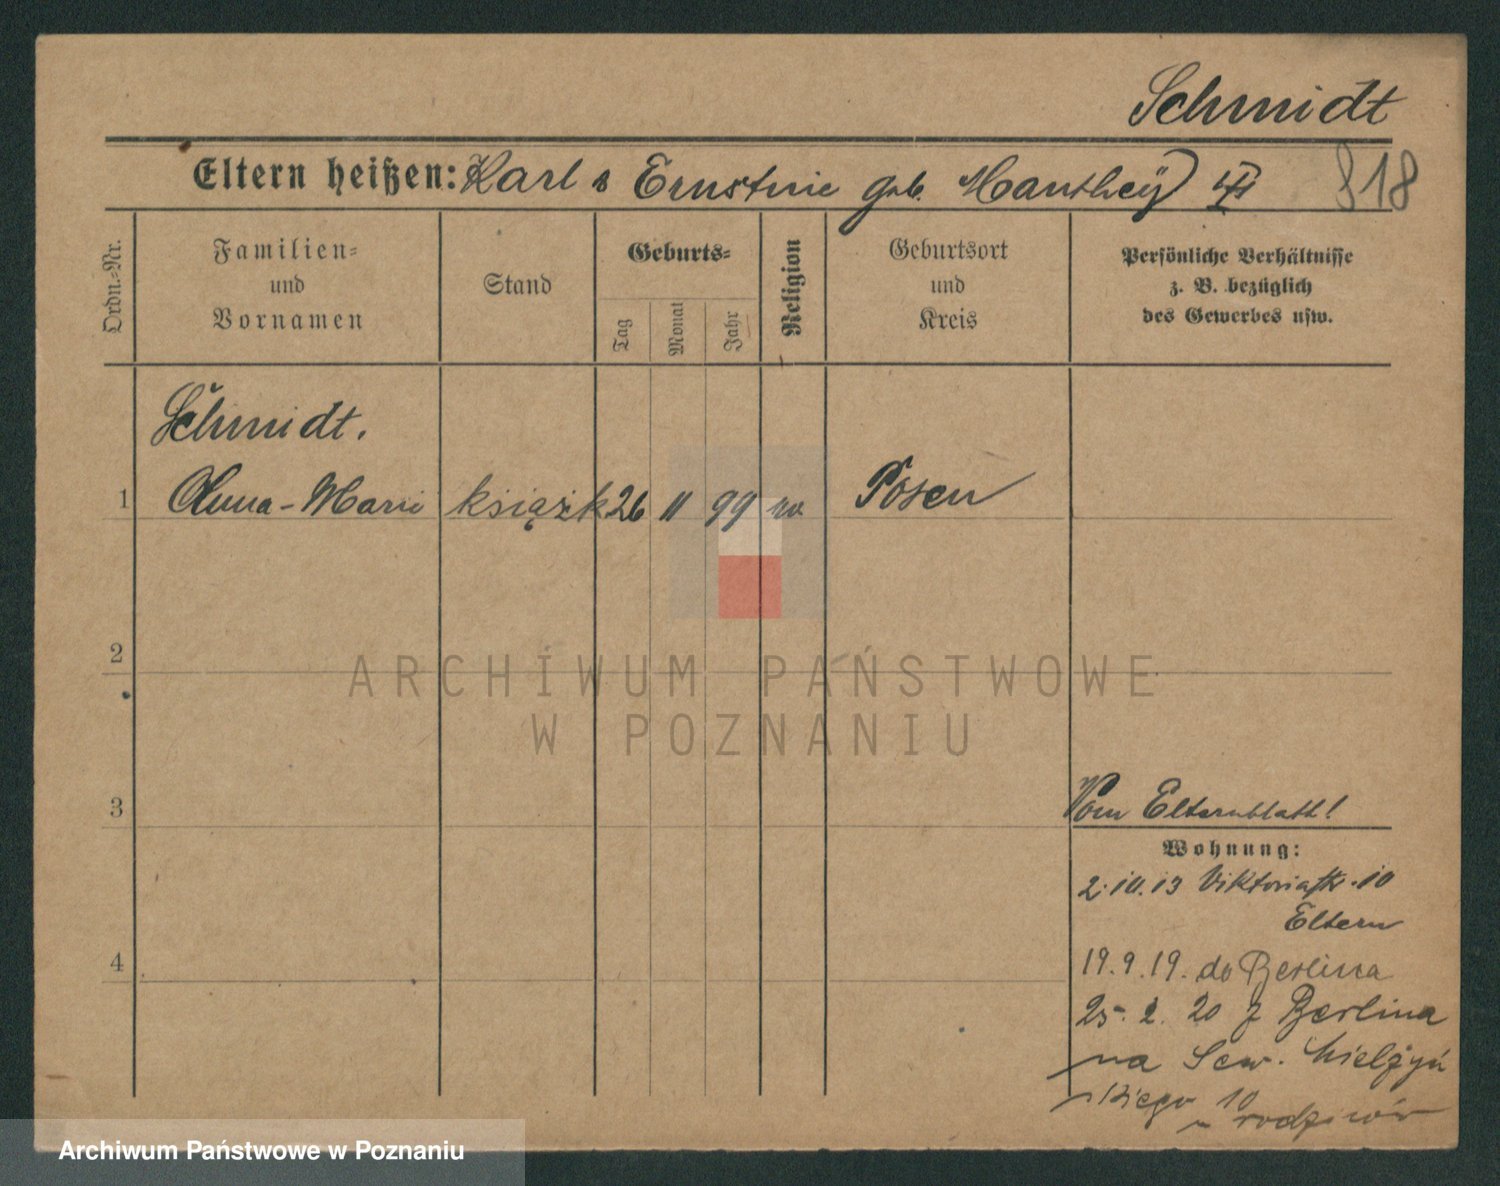 Schmidt
Eltern heißen: Karl & Ernstine geb. Manthey VI 818
Ordn.-Nr.
Familien-
und
Vornamen
Stand
Geburts-
Tag
Monat
Jahr
Religion
Geburtsort
und
Kreis
Persönliche Verhältnisse
z. B. bezüglich
des Gewerbes usw.
Schmidt.
1 Anna-Marie książk 26 11 99 ev Posen
2
3
4
Vom Elternblatt!
Wohnung:
2.10.13 Viktoriastr. 10
Eltern
19.9.19. do Berlina
25.2.20 z Berlina
na Sew. Mielżyń
skiego 10
u rodziców
ARCHIWUM PAŃSTWOWE
W POZNANIU
Archiwum Państwowe w Poznaniu